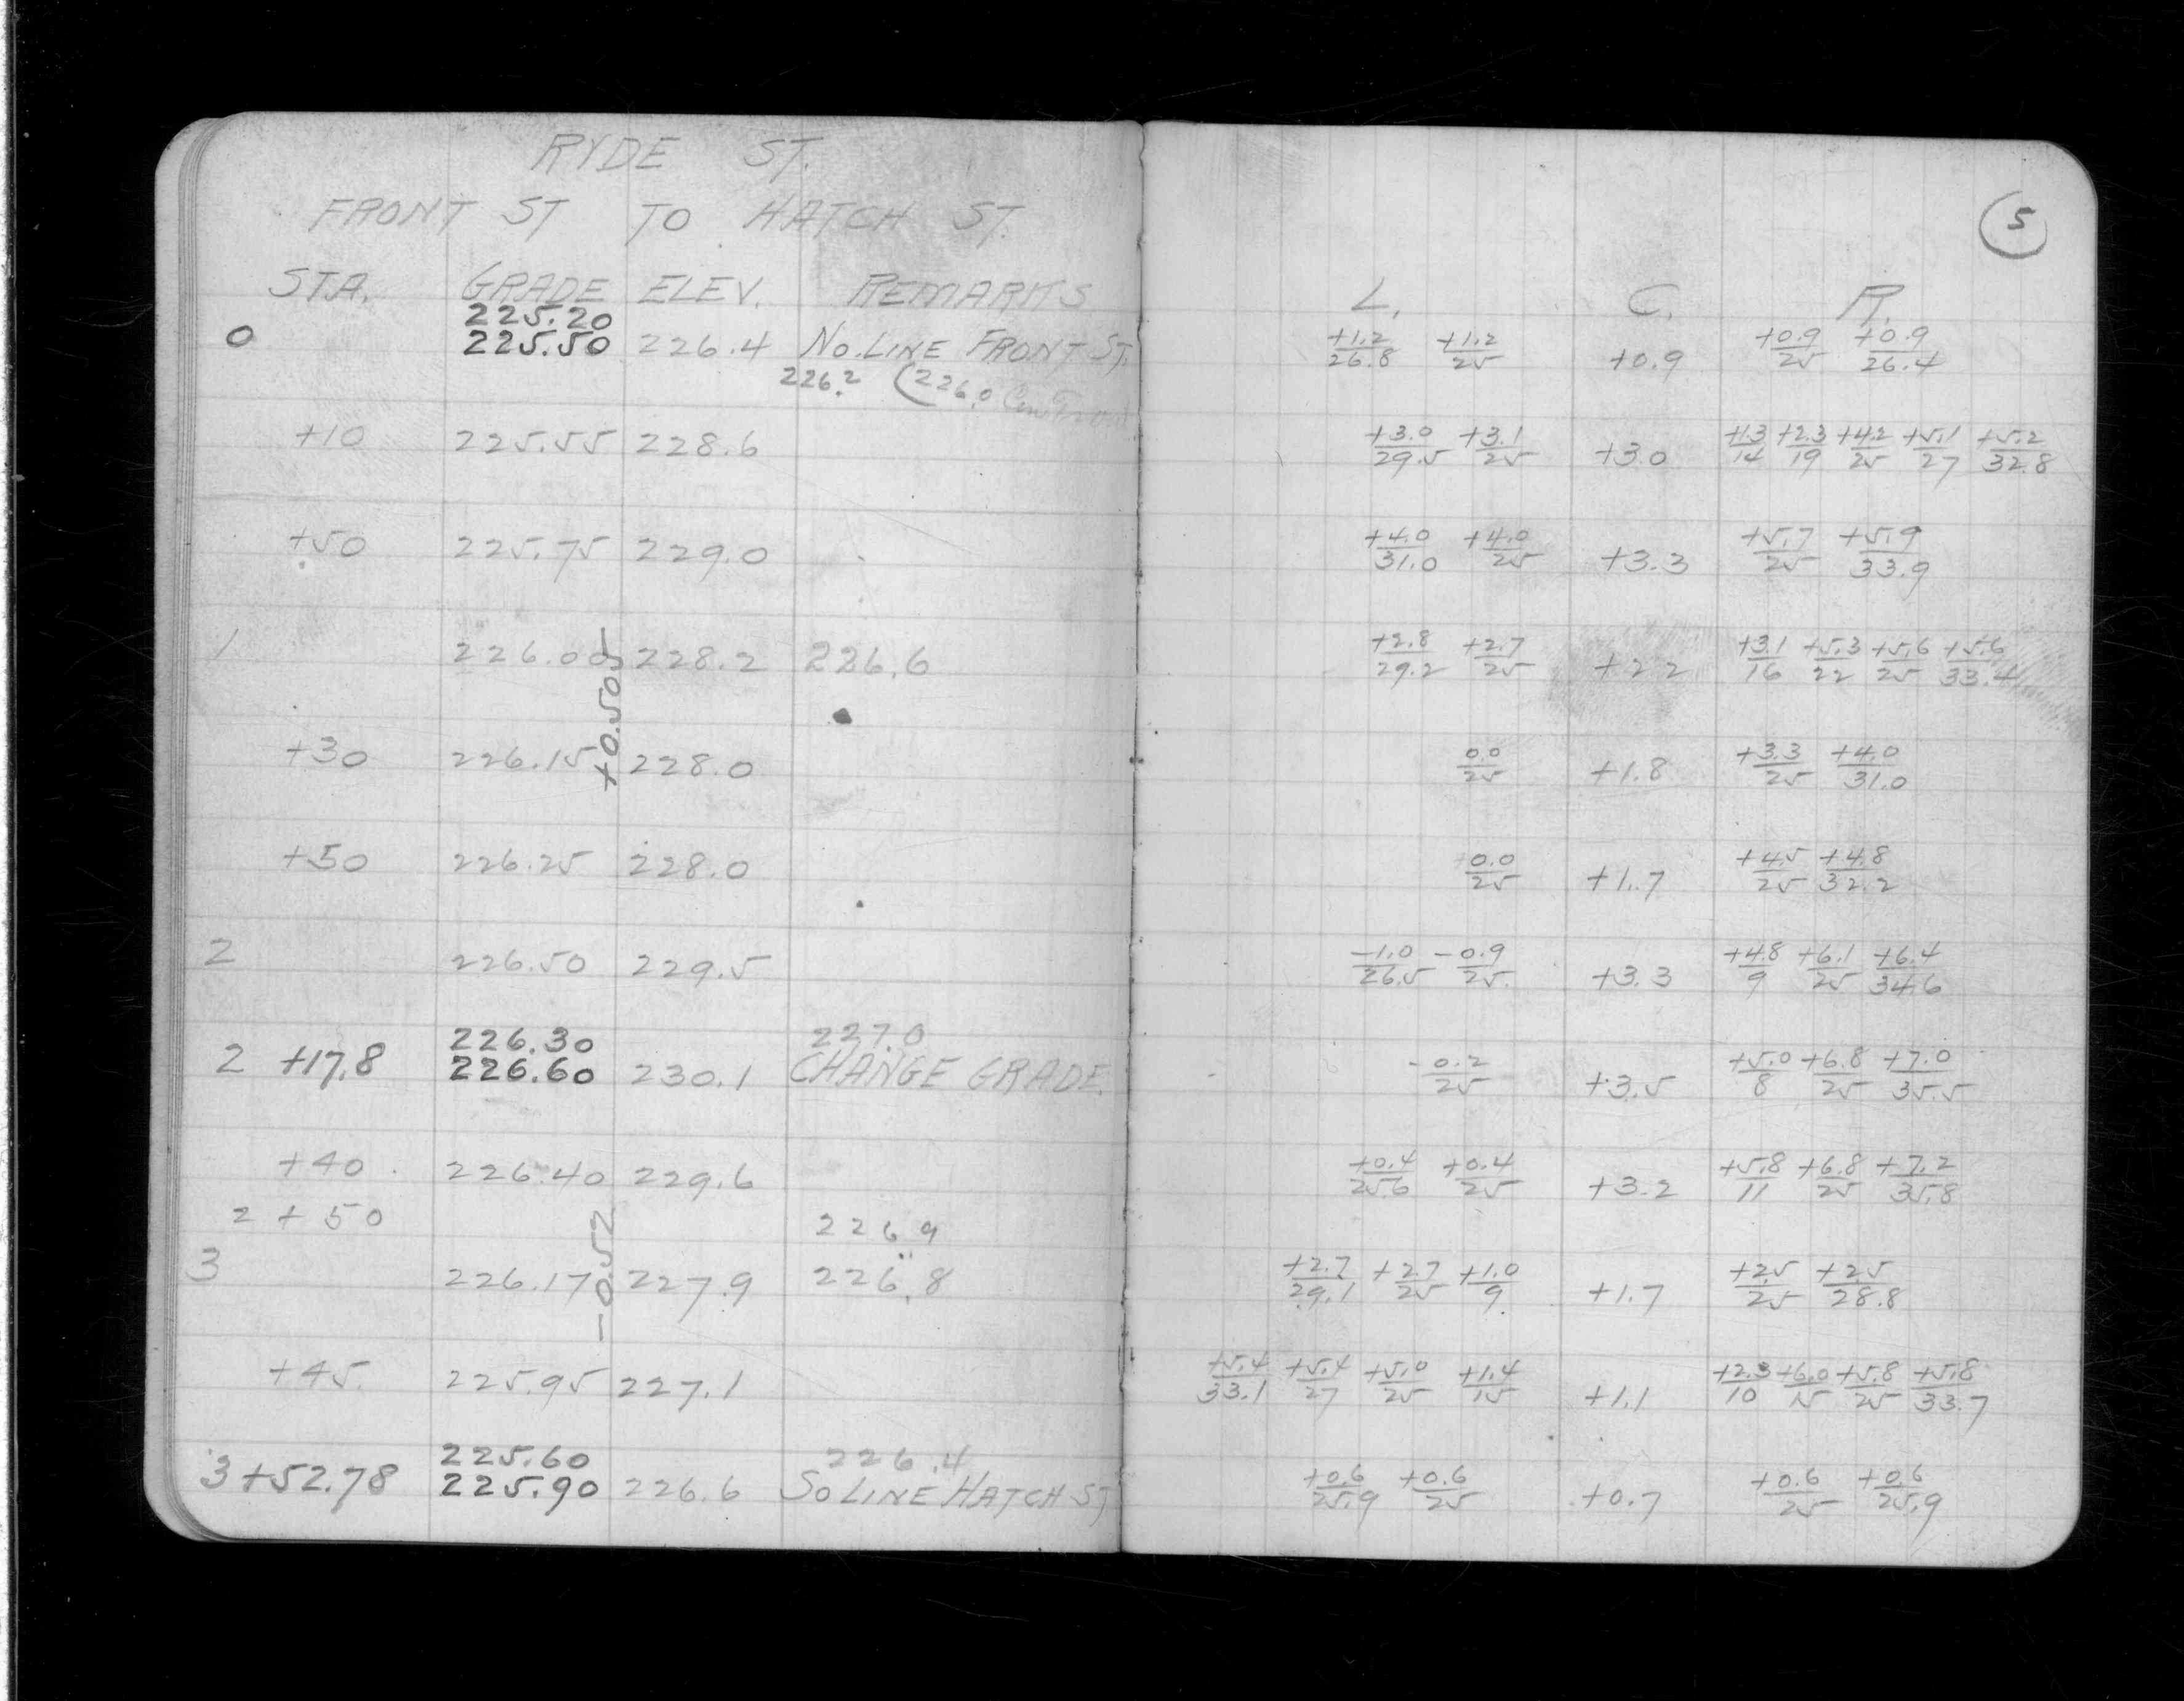 RYDE ST.
FRONT ST TO HATCH ST.
STA. GRADE ELEV. REMARKS
225.20
0 225.50 226.4 NO. LINE FRONT ST.
226.2 (226.0
+10 225.55 228.6
+50 225.75 229.0
1 226.00 228.2 226.6
+0.505
+30 226.15 228.0
+50 226.25 228.0
2 226.50 229.5
226.30 227.0
2 +17.8 226.60 230.1 CHANGE GRADE.
+40. 226.40 229.6
2 + 50 226 9
-0.52
3 226.17 227.9 226.8
+45. 225.95 227.1
225.60 226.4
3+52.78 225.90 226.6 SO LINE HATCH ST
5
L. C. R.
+1.2/26.8 +1.2/25 +0.9 +0.9/25 +0.9/26.4
+3.0/29.5 +3.1/25 +3.0 +1.3/14 +2.3/19 +4.2/25 +5.1/27 +5.2/32.8
+4.0/31.0 +4.0/25 +3.3 +5.7/25 +5.9/33.9
+2.8/29.2 +2.7/25 +2.2 +3.1/16 +5.3/22 +5.6/25 +5.6/33.4
0.0/25 +1.8 +3.3/25 +4.0/31.0
+0.0/25 +1.7 +4.5/25 +4.8/32.2
-1.0/26.5 -0.9/25. +3.3 +4.8/9 +6.1/25 +6.4/34.6
-0.2/25 +3.5 +5.0/8 +6.8/25 +7.0/35.5
+0.4/25.6 +0.4/25 +3.2 +5.8/11 +6.8/25 +7.2/35.8
+2.7/29.1 +2.7/25 +1.0/9 +1.7 +2.5/25 +2.5/28.8
+5.4/33.1 +5.4/27 +5.0/25 +1.4/15 +1.1 +2.3/10 +6.0/15 +5.8/25 +5.8/33.7
+0.6/25.9 +0.6/25 +0.7 +0.6/25 +0.6/25.9